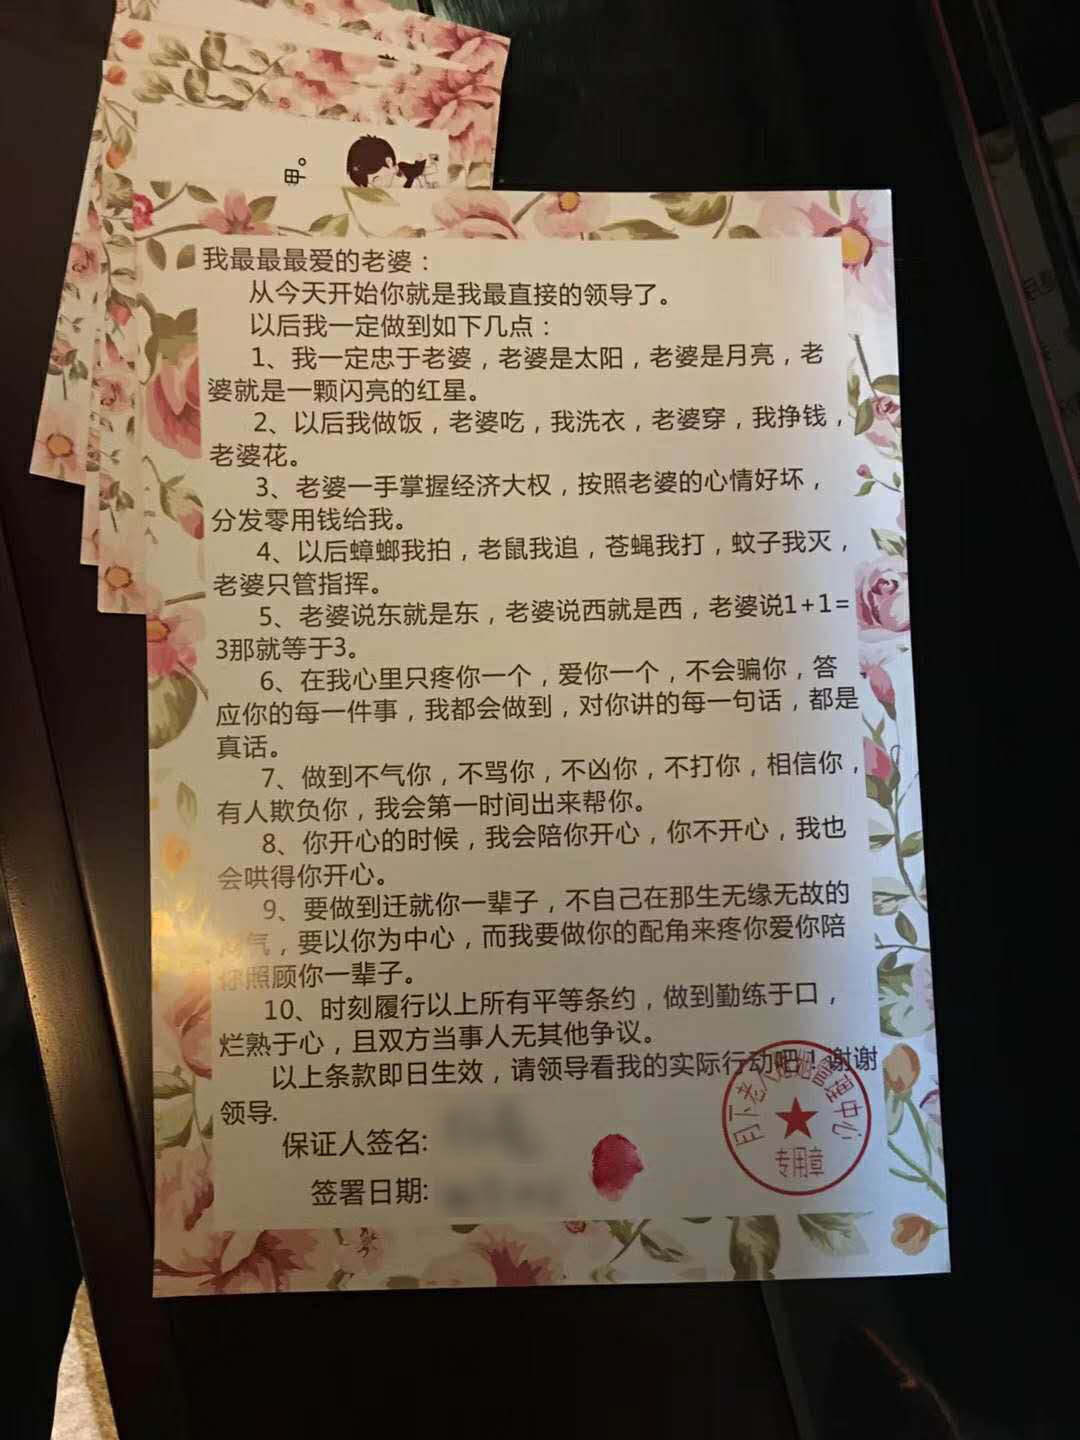 甲。
我最最最爱的老婆：
从今天开始你就是我最直接的领导了。
以后我一定做到如下几点：
1、我一定忠于老婆，老婆是太阳，老婆是月亮，老
婆就是一颗闪亮的红星。
2、以后我做饭，老婆吃，我洗衣，老婆穿，我挣钱，
老婆花。
3、老婆一手掌握经济大权，按照老婆的心情好坏，
分发零用钱给我。
4、以后蟑螂我拍，老鼠我追，苍蝇我打，蚊子我灭，
老婆只管指挥。
5、老婆说东就是东，老婆说西就是西，老婆说1+1=
3那就等于3。
6、在我心里只疼你一个，爱你一个，不会骗你，答
应你的每一件事，我都会做到，对你讲的每一句话，都是
真话。
7、做到不气你，不骂你，不凶你，不打你，相信你，
有人欺负你，我会第一时间出来帮你。
8、你开心的时候，我会陪你开心，你不开心，我也
会哄得你开心。
9、要做到迁就你一辈子，不自己在那生无缘无故的
气，要以你为中心，而我要做你的配角来疼你爱你陪
你照顾你一辈子。
10、时刻履行以上所有平等条约，做到勤练于口，
烂熟于心，且双方当事人无其他争议。
以上条款即日生效，请领导看我的实际行动吧！谢谢
领导.
保证人签名:
签署日期:
月下老人婚姻管理中心
专用章